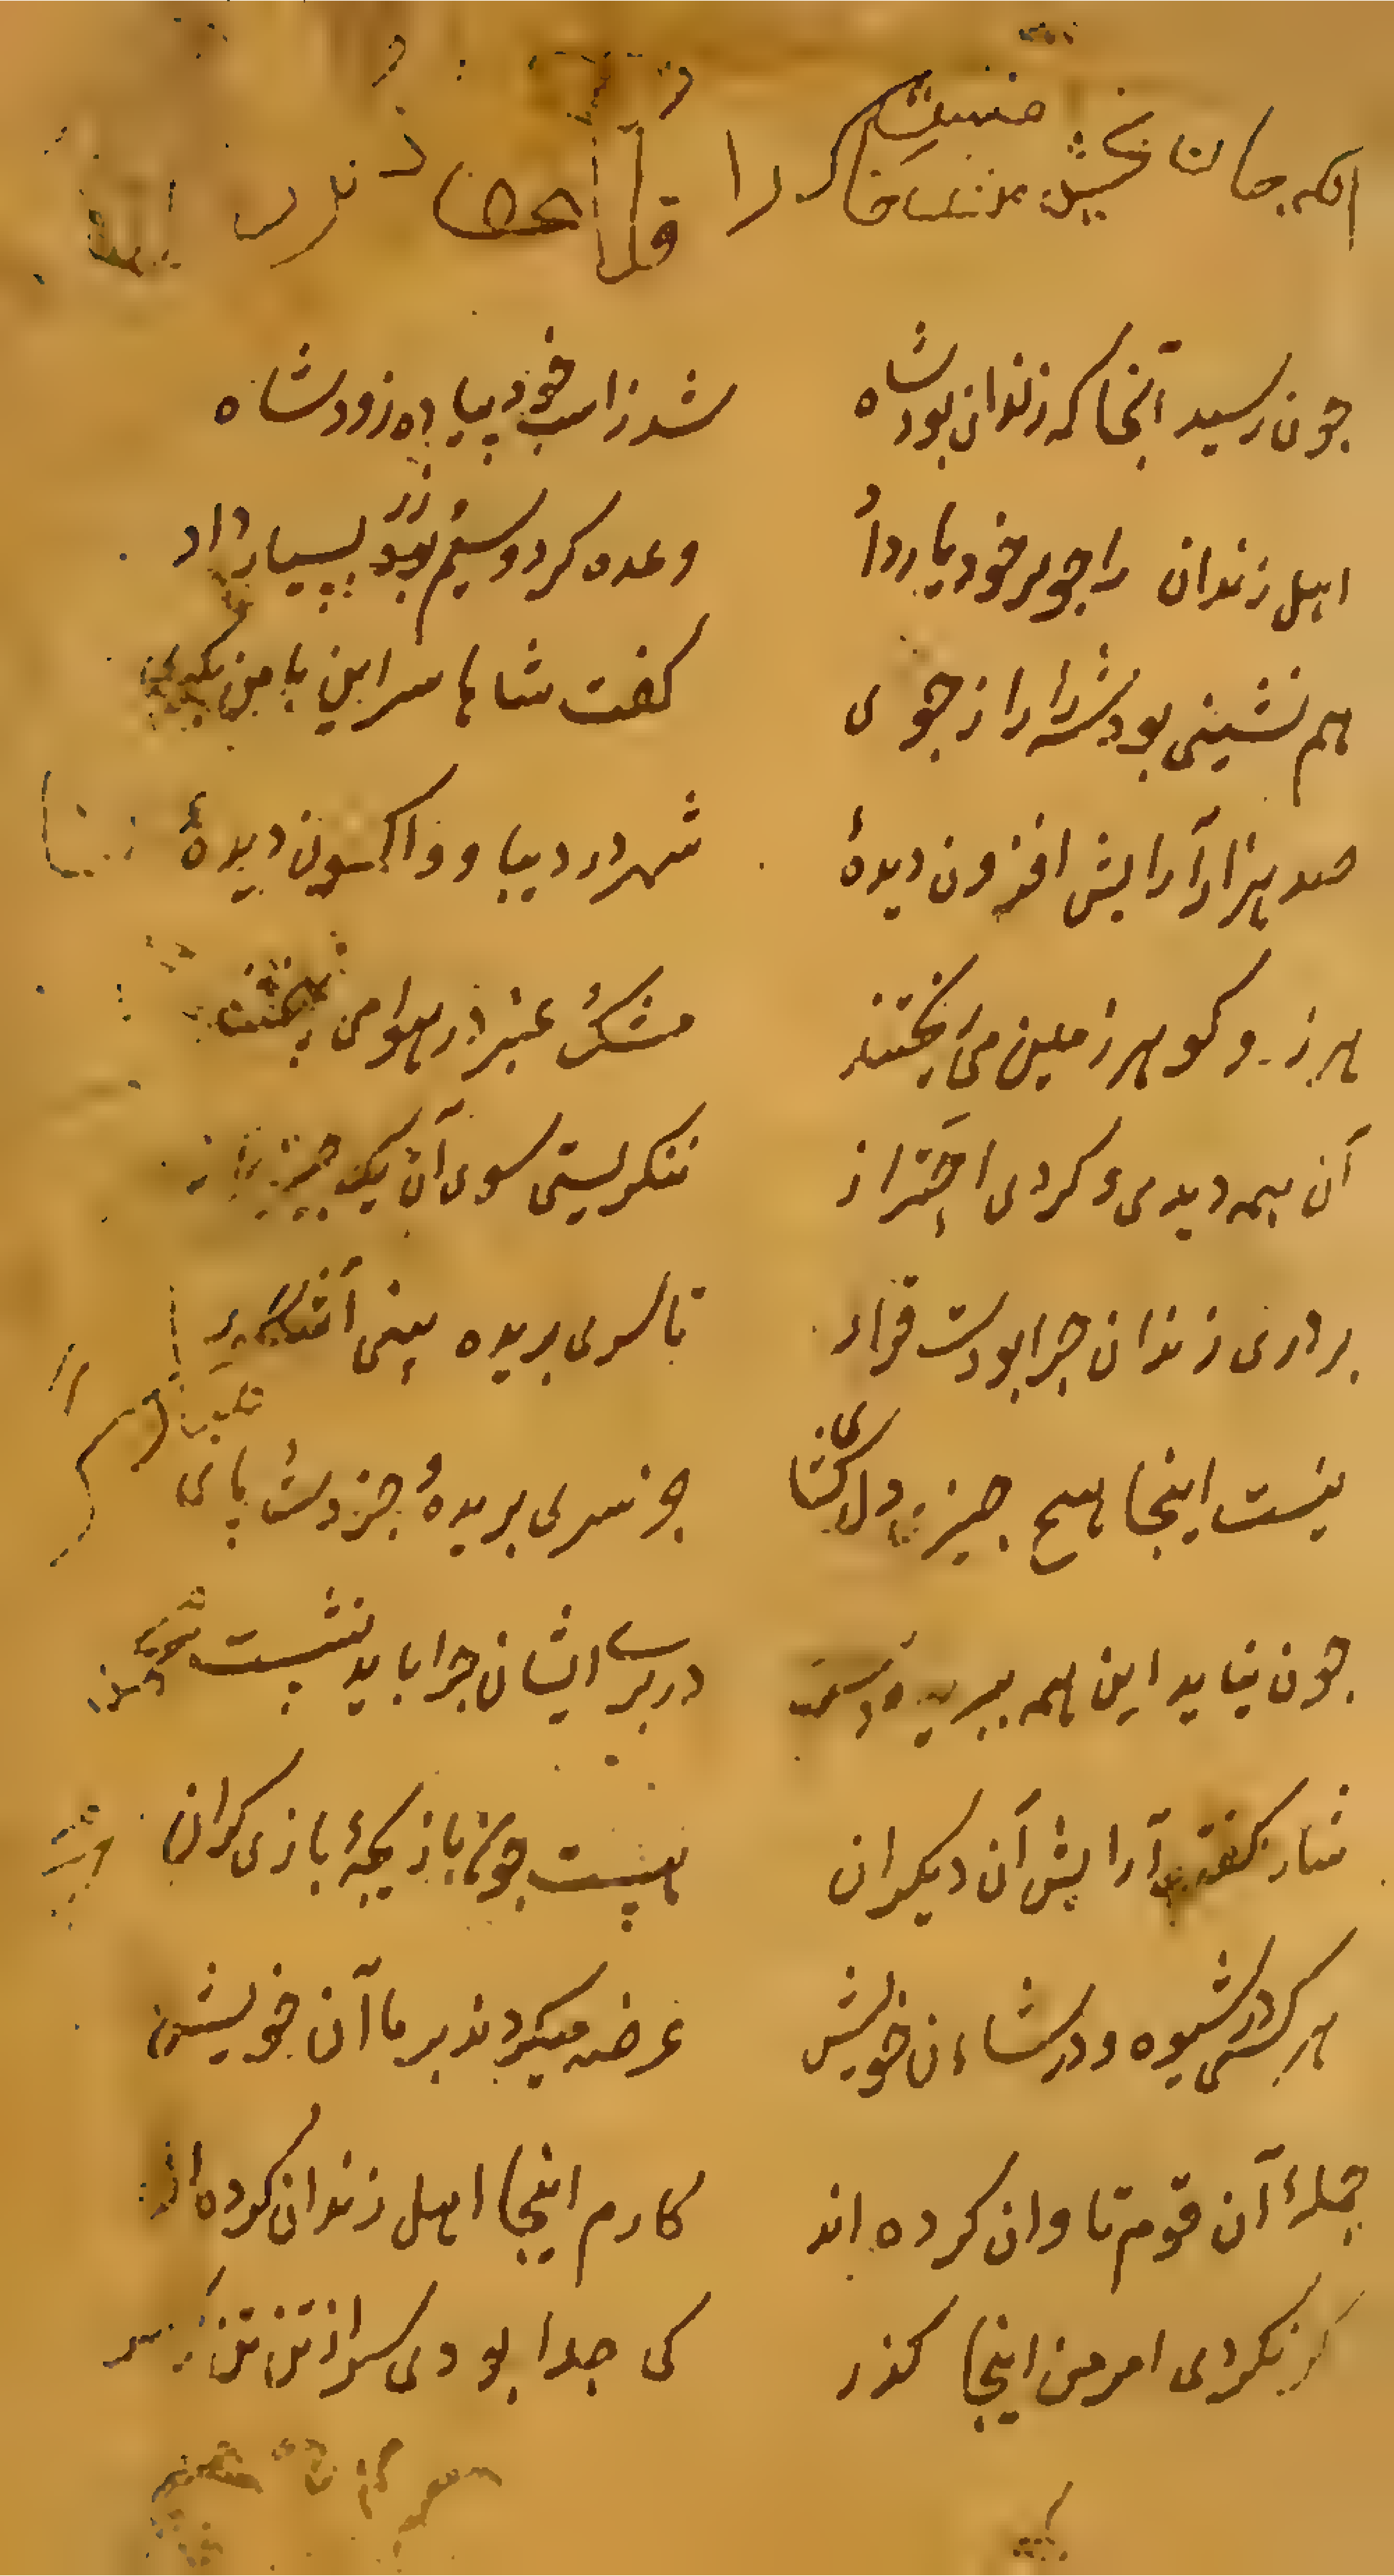 جون رسید آنجا که زندان بود شاه
شد ز اسب خود پیاده زود شاه
اهل زندان را جو بر خود یار داد
وعده کرد و سیم و زر بسیار داد
هم نشینی بود شه را راز جوی
کفت شاها سر این با من بکوی
صد هزار آرایش افزون دیدهٔ
شهر در دیبا و واکسون دیدهٔ
بر زر و کوهر زمین می‌ریختند
مشک عنبر در هوا می بیختند
آن همه دیدی و کردی احتراز
ننکرستی سوی آن یک چیز باز
بر در زندان چرا بودت قرار
تا سر بریده بینی
نیست اینجا هیچ جیز دل کشای
جز سر بریدهٔ و جز دست پای
جون نیاید این همه ببریده دست
در بر ایشان جرا باید نشست
شاه کفت آرایش آن دیکران
هست جون بازیجهٔ بازی کران
هر کسی در شیوه و در شان خویش
عرضه میکردند بر ما آن خویش
جملهٔ آن قوم تاوان کرده اند
کارم اینجا اهل زندان کرده اند
کر نکردی امر من اینجا کذر
کی جدا بودی سر از تن تن ز سر